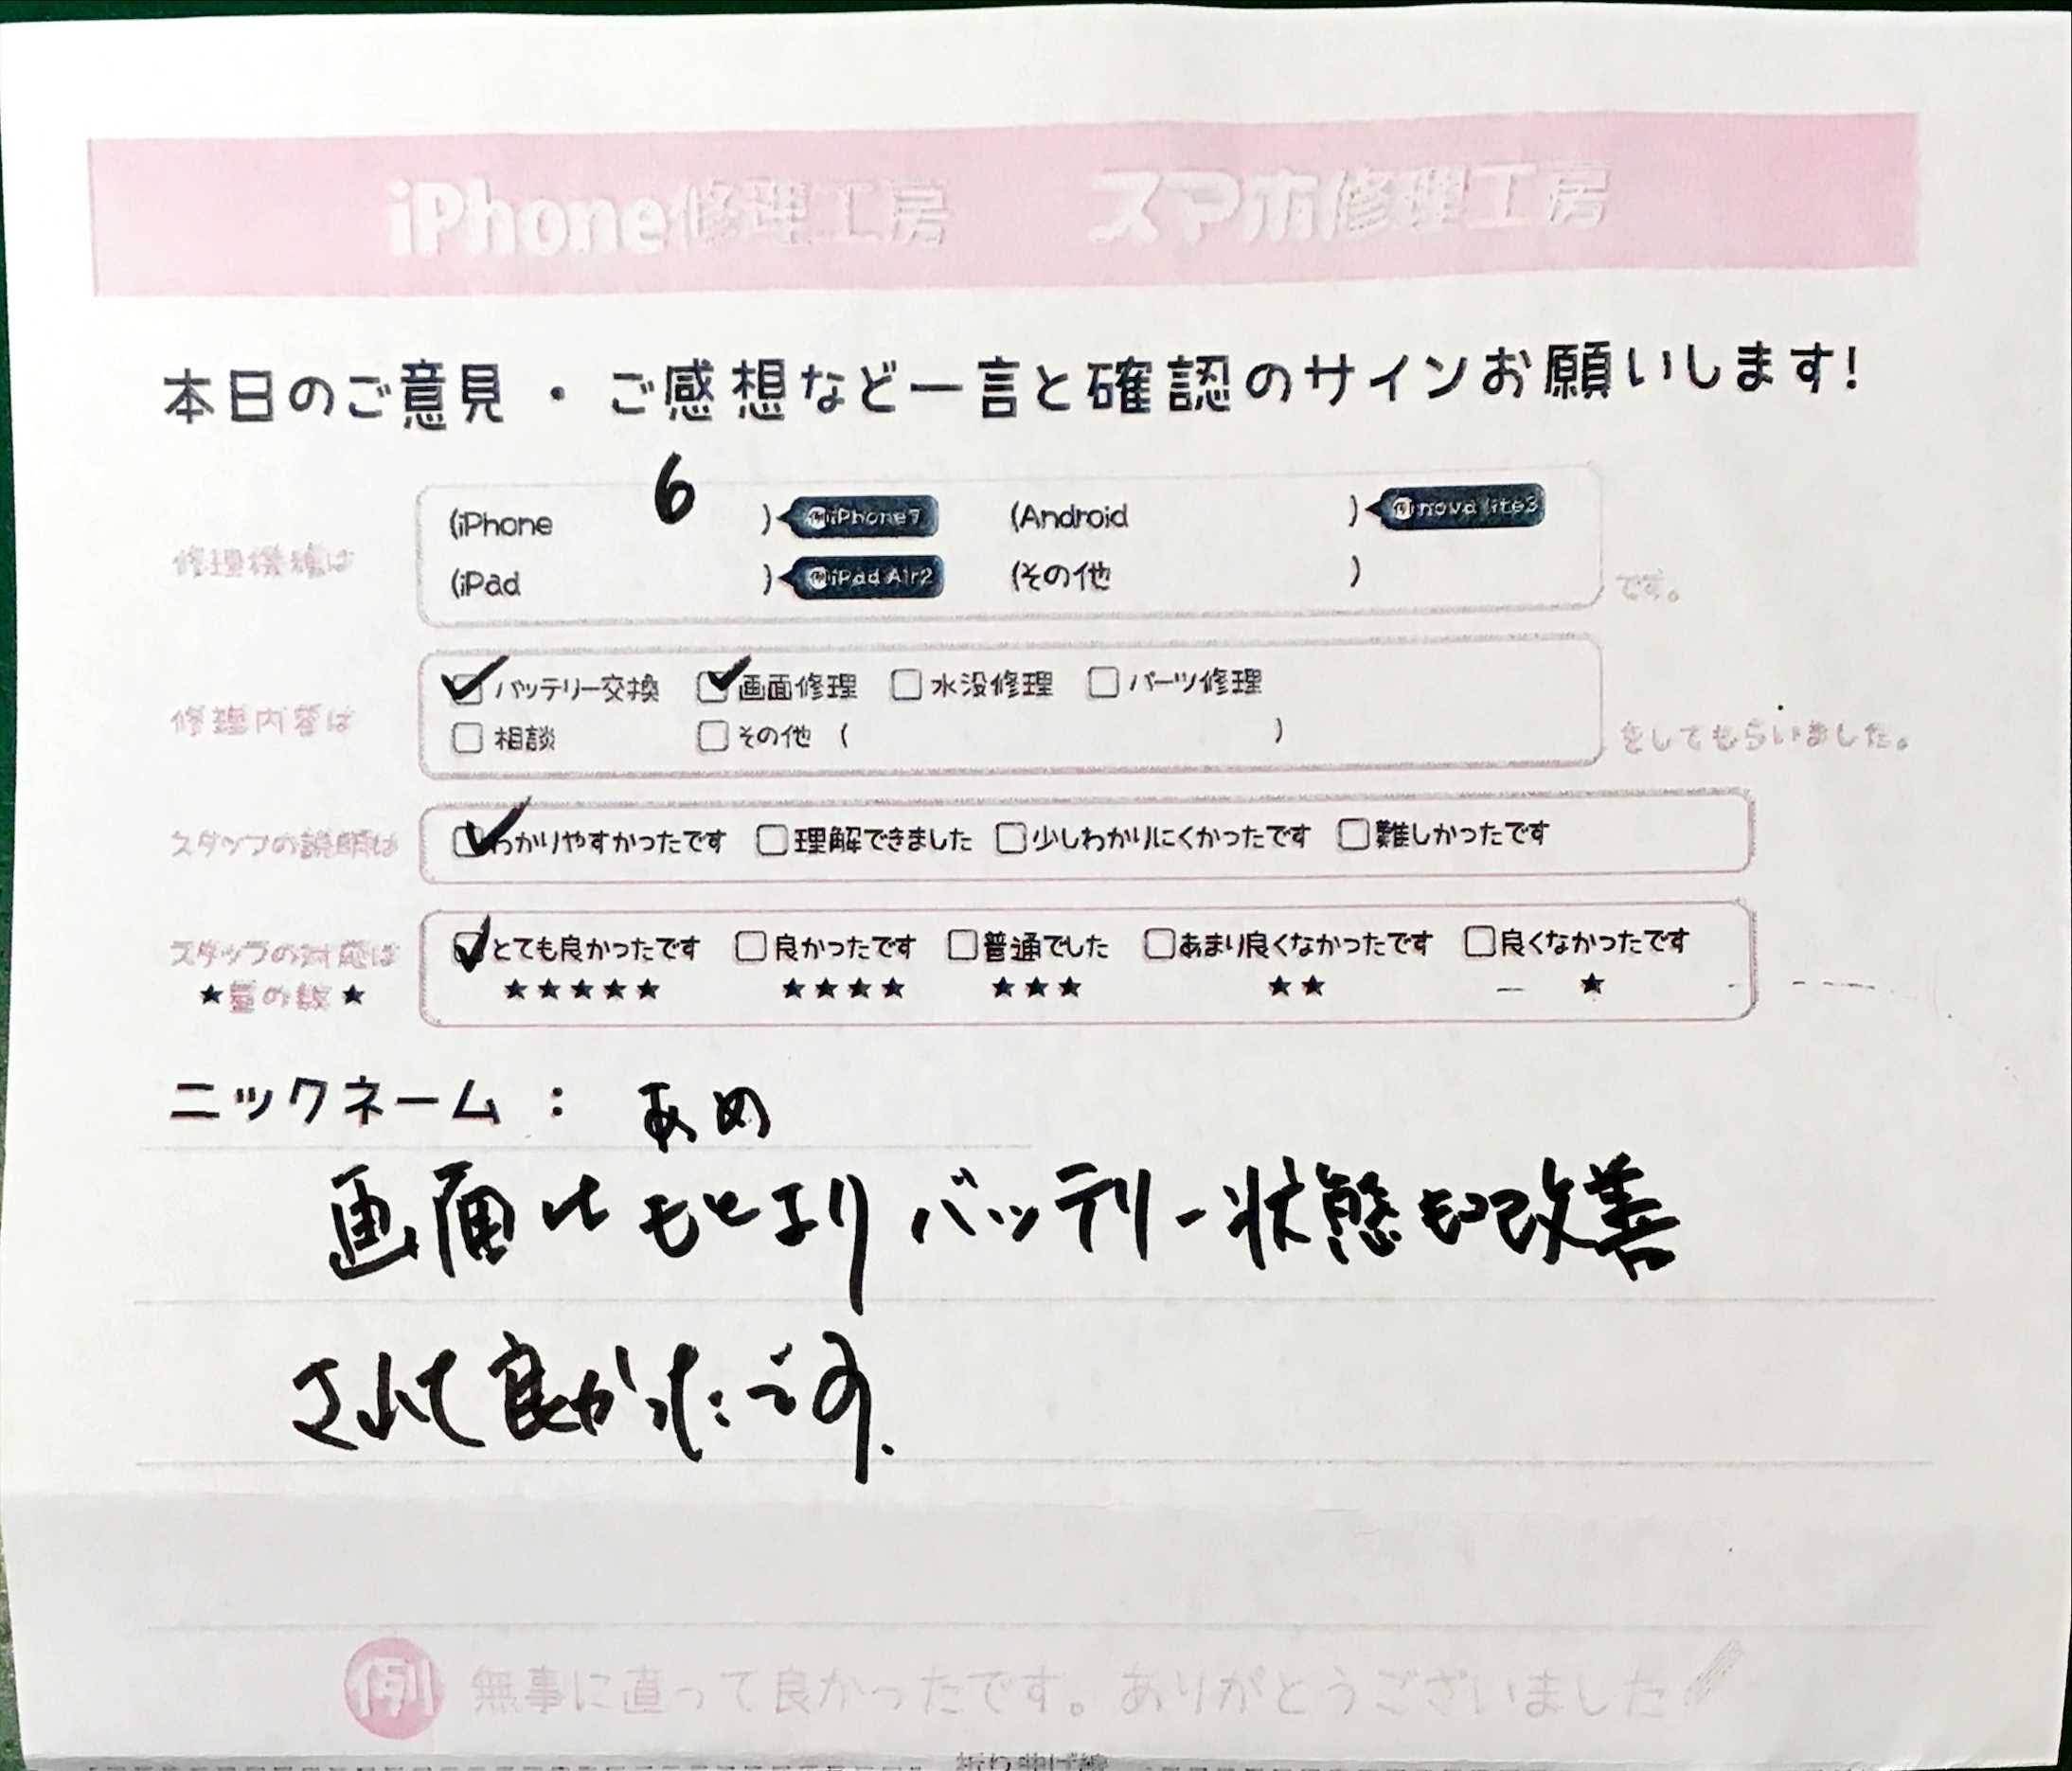 iPhone修理工房 スマホ修理工房
本日のご意見・ご感想など一言と確認のサインお願いします!
修理機種は
(iPhone 6 ) 例iPhone7 (Android ) 例nova lite3
(iPad ) 例iPad Air2 (その他 ) です。
修理内容は
☑バッテリー交換 ☑画面修理 □水没修理 □パーツ修理
□相談 □その他 ( ) をしてもらいました。
スタッフの説明は ☑わかりやすかったです □理解できました □少しわかりにくかったです □難しかったです
スタッフの対応は ☑とても良かったです □良かったです □普通でした □あまり良くなかったです □良くなかったです
★星の数★ ★★★★★ ★★★★ ★★★ ★★ ★
ニックネーム : あめ
画面はもとよりバッテリー状態も改善
されて良かったです.
例 無事に直って良かったです。ありがとうございました
折り曲げ線